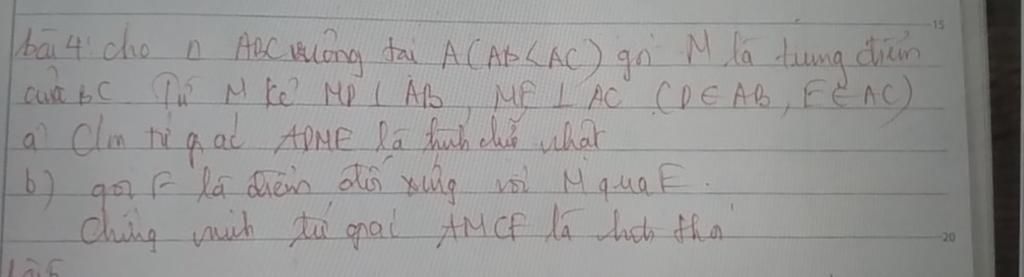 bài 4: cho △ ABC vuông tại A (AB < AC) gọi M là trung điểm
của BC Từ M kẻ MD ⊥ AB, ME ⊥ AC (D ∈ AB, E ∈ AC)
a) Cm tứ giác ADME là hình chữ nhật
b) gọi F là điểm đối xứng với M qua E.
Chứng minh tứ giác AMCF là hình thoi
15
20